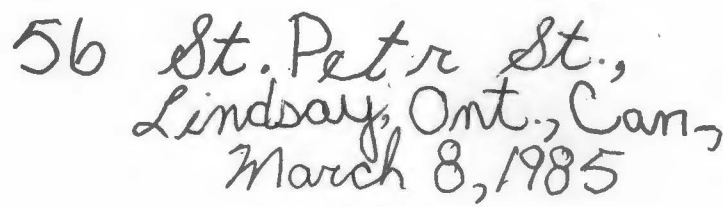 56 St. Petr St.,
Lindsay, Ont., Can,
March 8, 1985